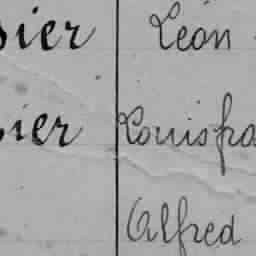 sier Léon
sier Louisfra
Alfred